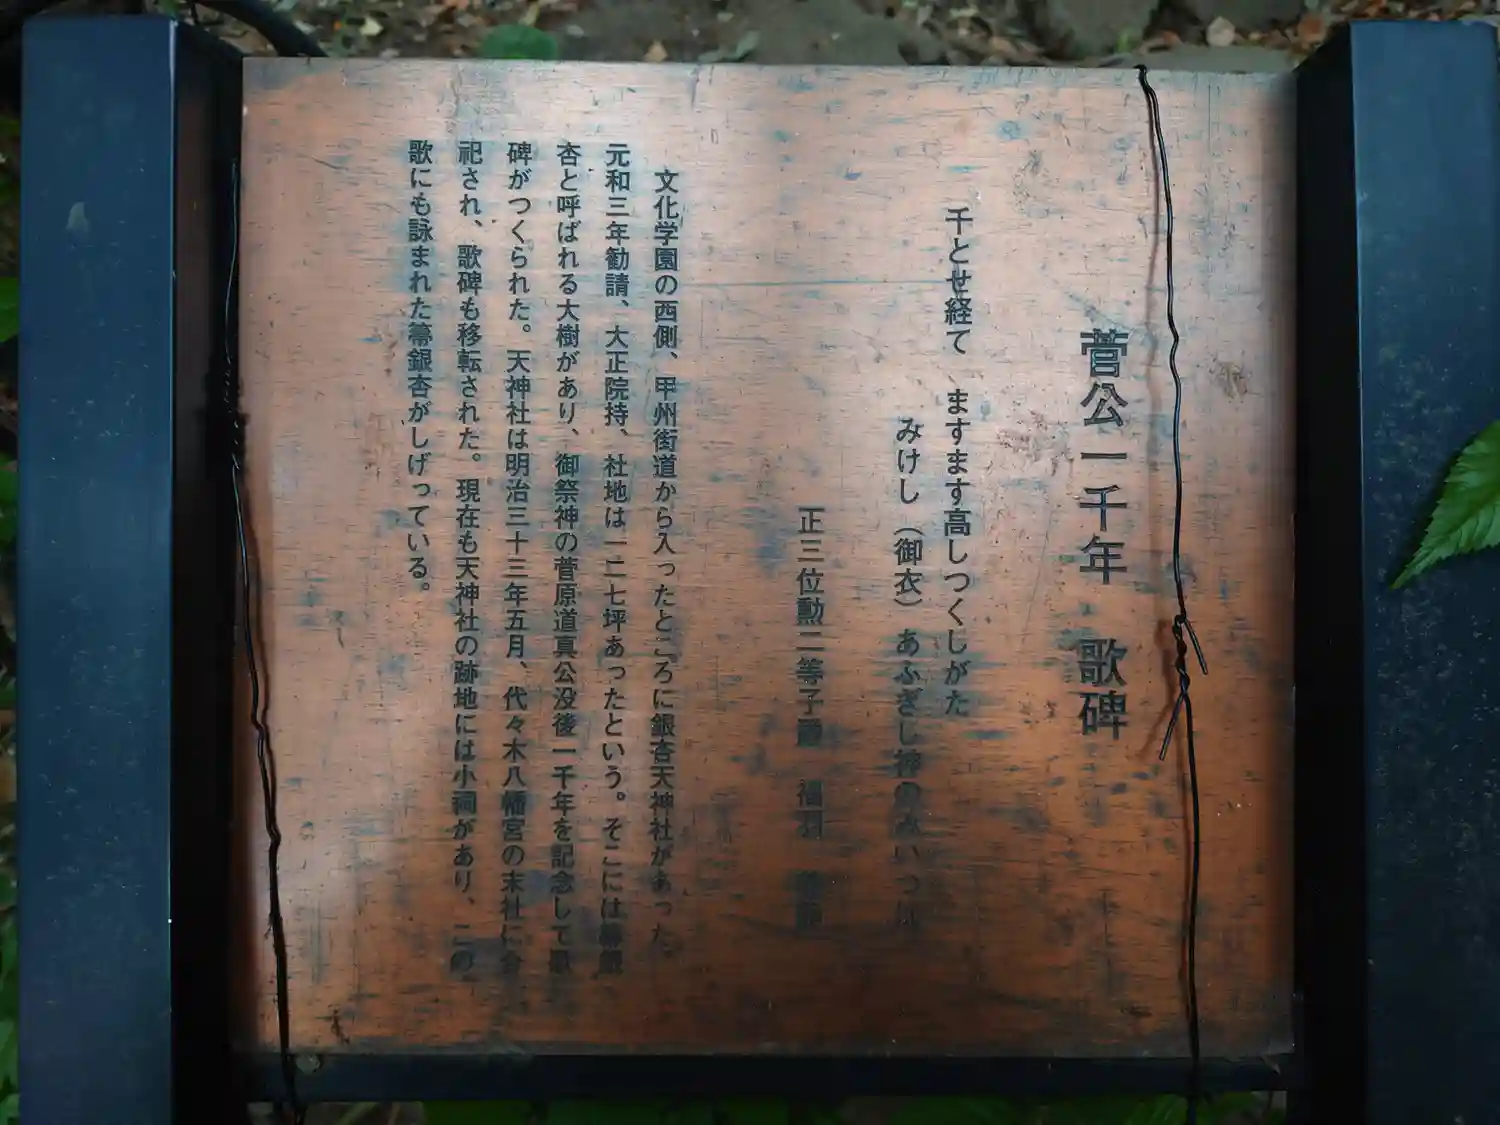 菅公一千年　歌碑
千とせ経て　ますます高しつくしがた
みけし（御衣）あふぎし神のみいつは
正三位勲二等子爵　福羽　美静
文化学園の西側、甲州街道から入ったところに銀杏天神社があった。
元和三年勧請、大正院持、社地は一二七坪あったという。そこには箒銀
杏と呼ばれる大樹があり、御祭神の菅原道真公没後一千年を記念して歌
碑がつくられた。天神社は明治三十三年五月、代々木八幡宮の末社に合
祀され、歌碑も移転された。現在も天神社の跡地には小祠があり、この
歌にも詠まれた箒銀杏がしげっている。